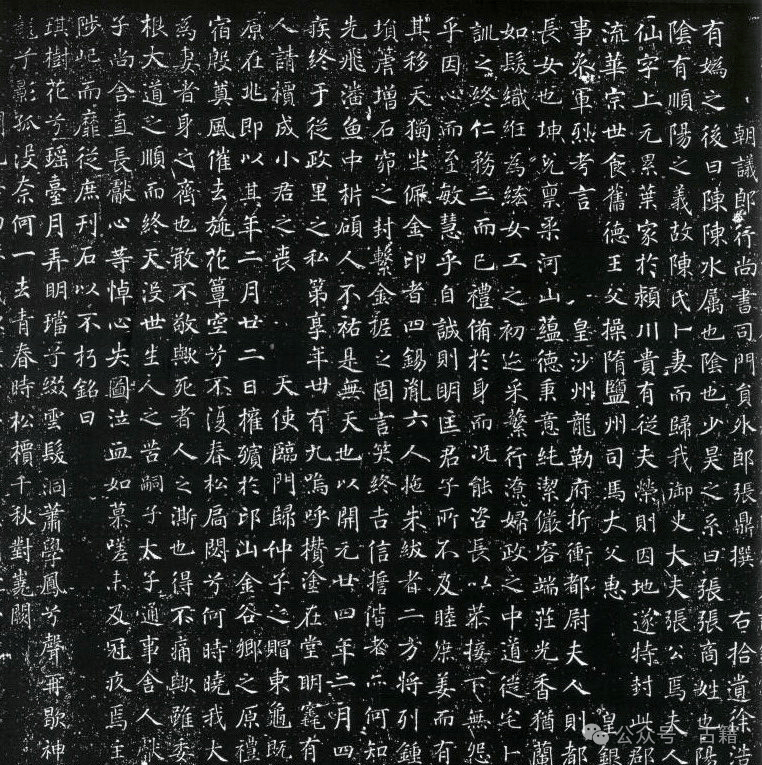 朝議郎行尚書司門員外郎張鼎撰 右拾遺徐浩
有媯之後曰陳陳水属也陰也少昊之系曰張張商姓也陽
陰有順陽之義故陳氏卜妻而歸我御史大夫張公焉夫人
仙字上元累葉家於潁川貴有從夫榮則因地遂特封此郡
流華宗世食舊德王父操隋鹽州司馬大父惠 皇銀
事叅軍烈考言 皇沙州龍勒府折衝都尉夫人則都
長女也坤皃稟柔河山蘊德秉意純潔儼容端莊光香猶蘭
如髮織紝為絃女工之初迄采蘩行潦婦政之中道從宅卜
訓之終仁務三而已禮備於身而況能咨長以恭接下無怨
乎因心而至敏慧乎自誠則明匡君子所不及睦姜而有
其移天獨坐佩金印者四錫胤六人拖朱紱者二方將列鍾
塤箎增石窌之封繫金柅之固言笑終吉信擔偕老亦何知
先飛潘魚中析碩人不祐是無天也以開元廿四年二月四
疾終于從政里之私第享年卌有九嗚呼攢塗在堂明竁有
人請櫝成小君之喪 天使臨門歸仲子之賵東龜既
原在兆即以其年二月廿二日擁殯於邙山金谷鄉之原禮
宿殷奠風催去旐花簟空兮不復春松扃閟兮何時曉我大
為妻者身之齊也敢不敬歟死者人之澌也得不痛歟雖委
根大道之順而終天没世生人之苦嗣子太子通事舍人獻
子尚舍直長獻心等悼心失圖泣血如慕嗟未及冠疚焉主
陟屺而靡從庶刊石以不朽銘曰
琪樹花兮瑶臺月弄明璫兮綴雲髮洞蕭學鳳兮聲冊歇神
龍兮影孤没奈何一去青春時松檟千秋對嵩闕
公众号·古籍